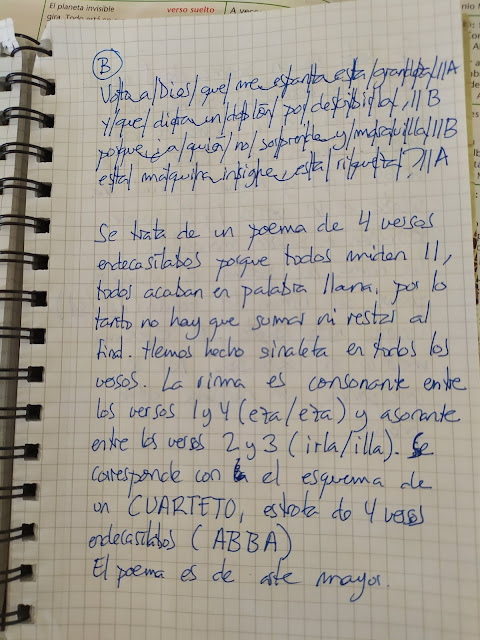 El planeta invisible
verso suelto
B
Vota/a/Dios/que/me espanta esta/grandeza/11A
y/que/diera un/doblón/por/describirla,/11B
porque a/quién/no/sorprende y/maravilla/11B
esta/máquina insigne, esta/riqueza/?/11A
Se trata de un poema de 4 versos
endecasílabos porque todos miden 11,
todos acaban en palabra llana, por lo
tanto no hay que sumar ni restar al
final. Hemos hecho sinalefa en todos los
versos. La rima es consonante entre
los versos 1 y 4 (eza/eza) y asonante
entre los versos 2 y 3 (irla/illa). Se
corresponde con el esquema de
un CUARTETO, estrofa de 4 versos
endecasílabos (ABBA)
El poema es de arte mayor.